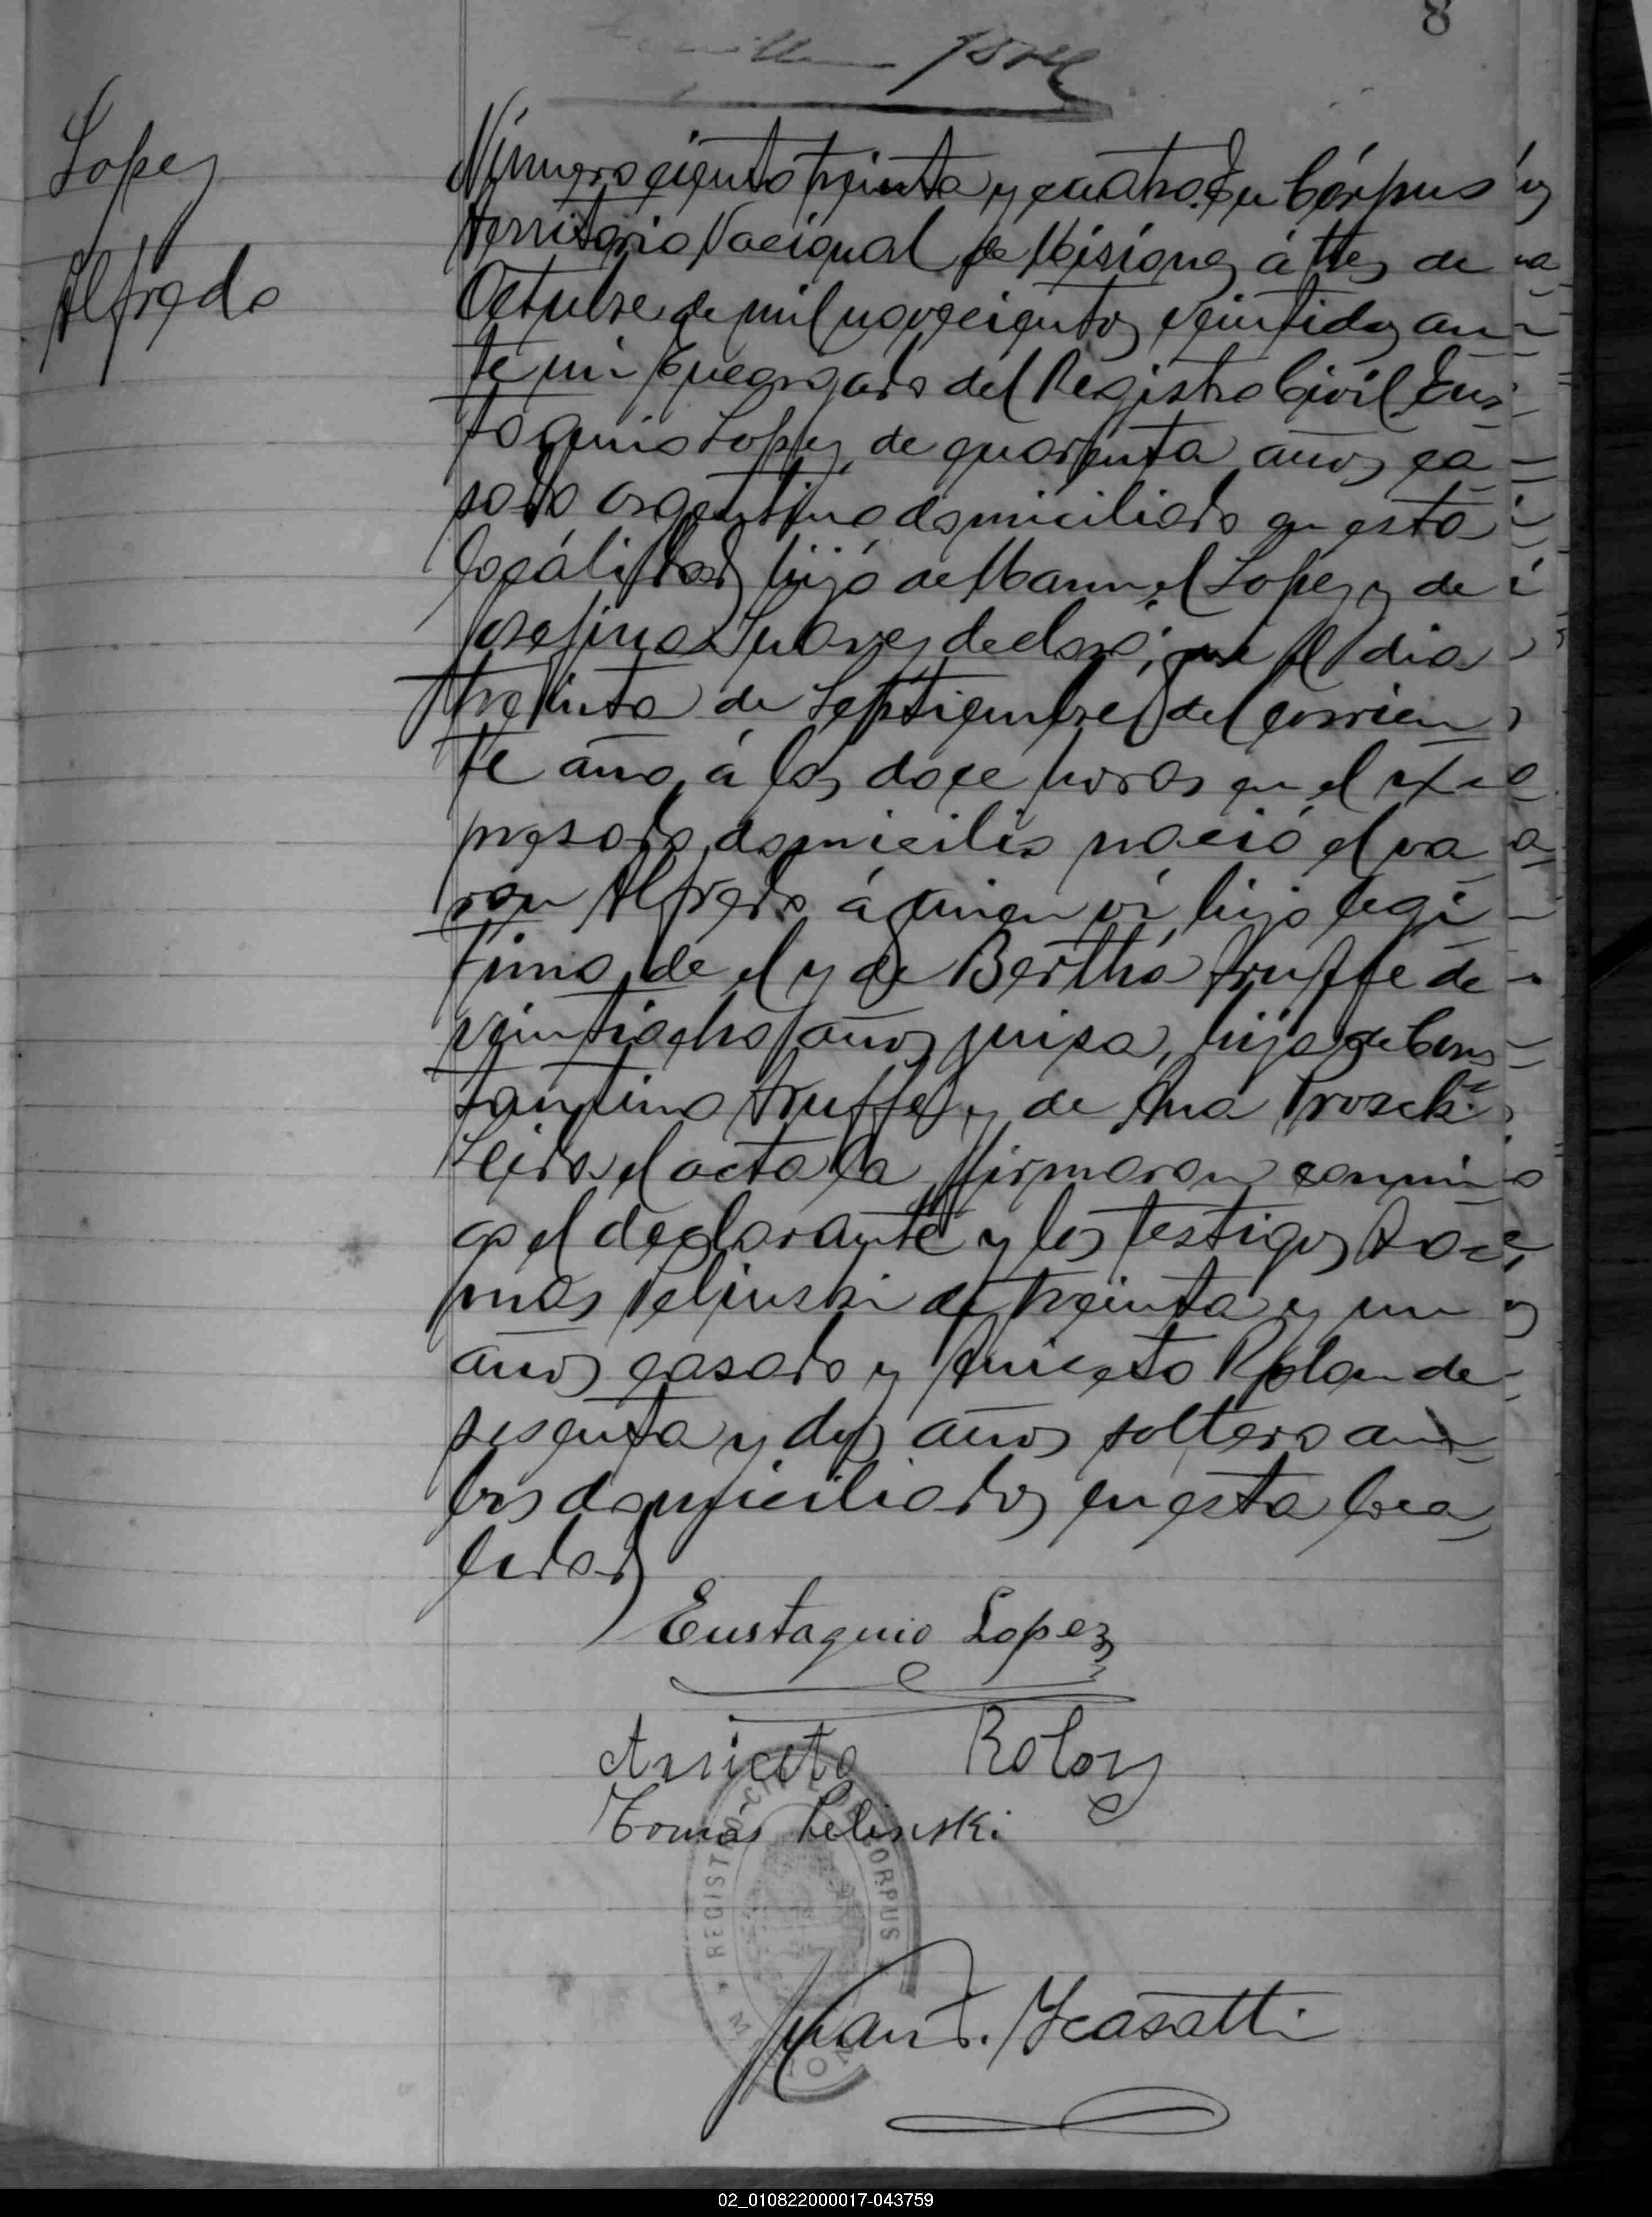 8
Lopez
Alfredo
Número ciento treinta y cuatro. En Córpus
territorio Nacional de Misiones á tres de
Octubre de mil novecientos veintidos an
te mi Encargado del Registro Civil Eus
taquio Lopez, de cuarenta años ca
sado argentino domiciliado en esta
localidad hijo de Manuel Lopez y de
Josefina Suarez declaró; que el dia
treinta de Septiembre del corrien
te año á las doce horas en el ex
presado domicilio nació el va
ron Alfredo á quien vi hijo legi
timo de el y de Bertha Truffe de
veintiocho años suiza, hija de Cons
tantino Truffe y de Ana Prosch.
Leida el acta la firmaron conmi
go el declarante y los testigos To
mas Pelinski de treinta y un
años casado y Aniceto Rolon de
sesenta y dos años soltero am
bos domiciliados en esta loca
lidad
Eustaquio Lopez
Aniceto Rolon
Tomas Pelinski
REGISTRO CIVIL DE CORPUS
Juan F. Icasatti
02_010822000017-043759